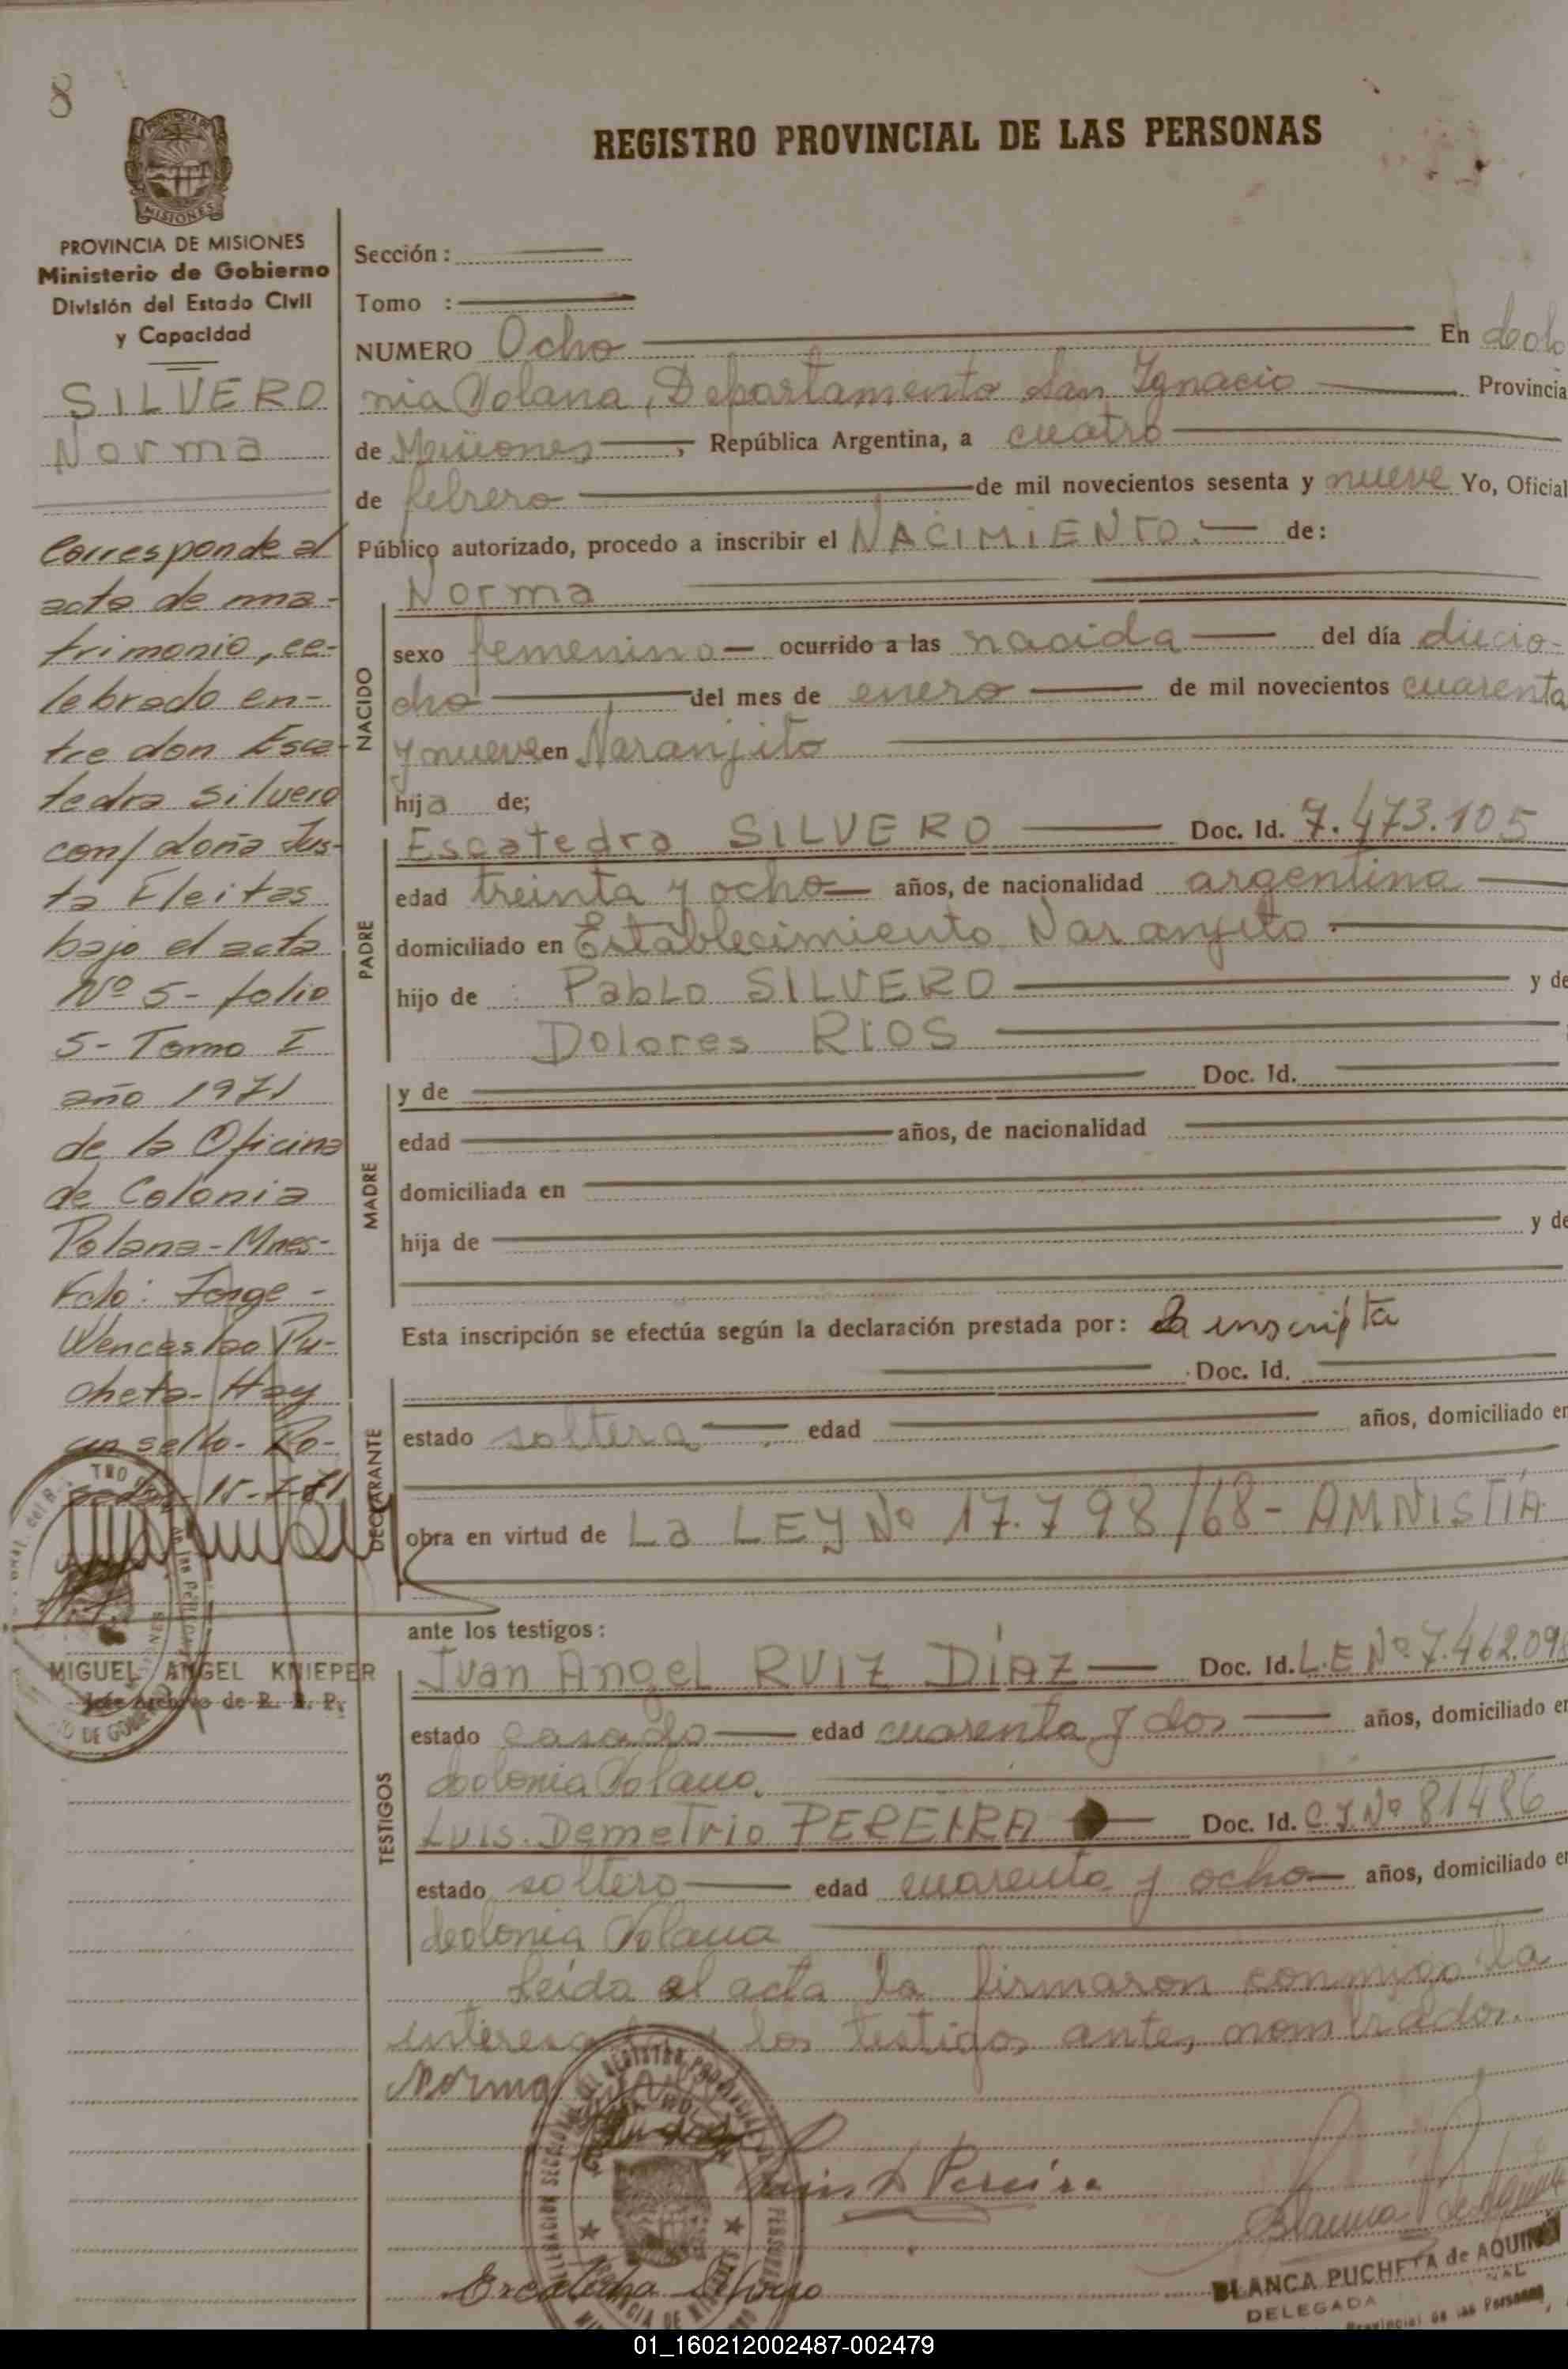 8
REGISTRO PROVINCIAL DE LAS PERSONAS
MISIONES
PROVINCIA DE MISIONES
Ministerio de Gobierno
División del Estado Civil
y Capacidad
SILVERO
Norma
Corresponde al
acta de ma-
trimonio, ce-
lebrado en-
tre don Esca-
tedra Silvero
con/ doña Jus-
ta Fleitas
bajo el acta
Nº 5- folio
5- Tomo I
año 1971
de la Oficina
de Colonia
Polana- Mnes-
Fdo: Jorge -
Wenceslao Pu-
cheta- Hay
un sello-
15-7-71
MIGUEL ANGEL KNIEPER
Jefe Archivo de R. P. P.
Sección :
Tomo :
NUMERO Ocho En Colo
nia Polana, Departamento San Ignacio Provincia
de Misiones, República Argentina, a cuatro
de febrero de mil novecientos sesenta y nueve Yo, Oficial
Público autorizado, procedo a inscribir el NACIMIENTO.- de:
NACIDO
Norma
sexo femenino ocurrido a las nacida del día diecio-
cho del mes de enero de mil novecientos cuarenta
y nueve en Naranjito
hija de;
PADRE
Escatedra SILVERO Doc. Id. 7.473.105
edad treinta y ocho años, de nacionalidad argentina
domiciliado en Establecimiento Naranjito.
hijo de Pablo SILVERO y de
Dolores RIOS
MADRE
y de Doc. Id.
edad años, de nacionalidad
domiciliada en
hija de y de
Esta inscripción se efectúa según la declaración prestada por: la inscripta
DECLARANTE
Doc. Id.
estado soltera edad años, domiciliado en
obra en virtud de La LEY Nº 17.798/68- AMNISTÍA
ante los testigos :
TESTIGOS
Juan Angel RUIZ DÍAZ Doc. Id. L.E Nº 7.462.098
estado casado edad cuarenta y dos años, domiciliado en
Colonia Polana.
Luis Demetrio PEREIRA Doc. Id. C.I. Nº 81486
estado soltero edad cuarenta y ocho años, domiciliado en
Colonia Polana
Leída el acta la firmaron conmigo la
interesada y los testigos antes nombrados.
Norma
Luis D Pereira
Escatedra Silvero
BLANCA PUCHETA de AQUINO
DELEGADA
Provincial de las Personas
01_160212002487-002479